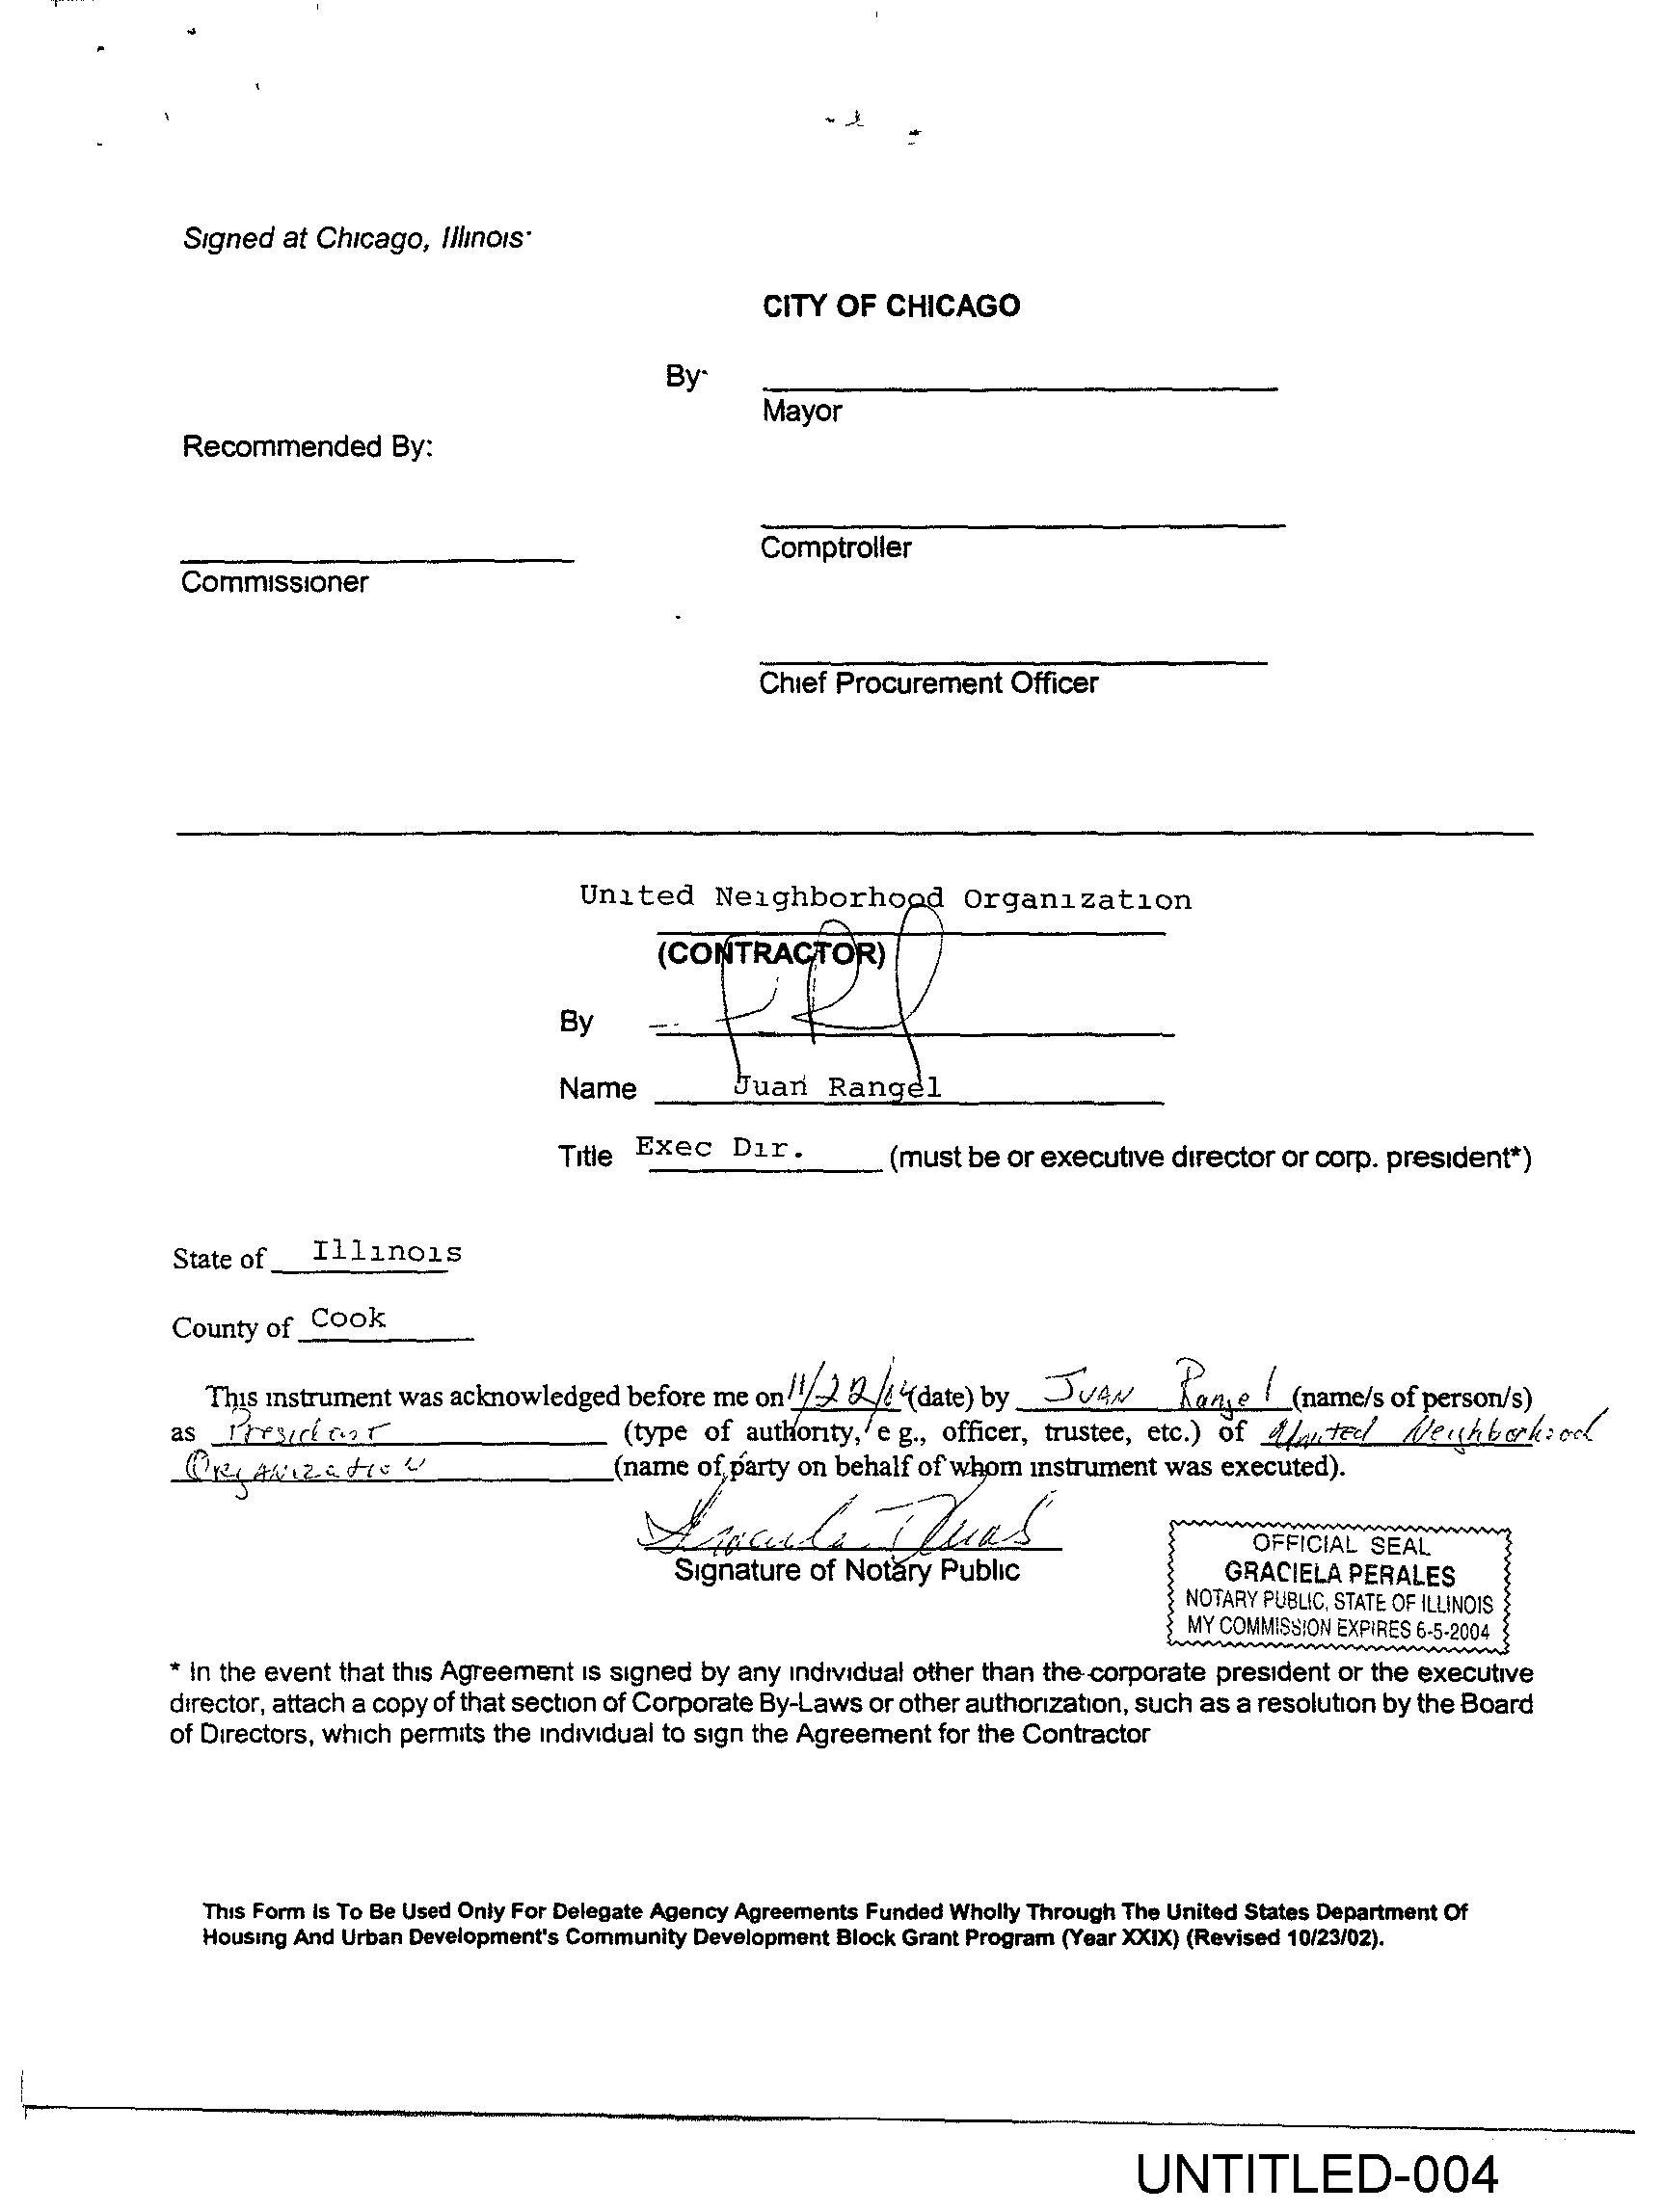 Signed at Chicago, Illinois:
CITY OF CHICAGO
By:
Mayor
Recommended By:
Comptroller
Commissioner
Chief Procurement Officer
United Neighborhood Organization
(CONTRACTOR)
By
Name Juan Rangel
Title Exec Dir. (must be or executive director or corp. president*)
State of Illinois
County of Cook
This instrument was acknowledged before me on 11/22/04 (date) by Juan Rangel (name/s of person/s)
as President (type of authority, e g., officer, trustee, etc.) of United Neighborhood
Organization (name of party on behalf of whom instrument was executed).
Signature of Notary Public
OFFICIAL SEAL
GRACIELA PERALES
NOTARY PUBLIC, STATE OF ILLINOIS
MY COMMISSION EXPIRES 6-5-2004
* In the event that this Agreement is signed by any individual other than the corporate president or the executive
director, attach a copy of that section of Corporate By-Laws or other authorization, such as a resolution by the Board
of Directors, which permits the individual to sign the Agreement for the Contractor
This Form Is To Be Used Only For Delegate Agency Agreements Funded Wholly Through The United States Department Of
Housing And Urban Development's Community Development Block Grant Program (Year XXIX) (Revised 10/23/02).
UNTITLED-004